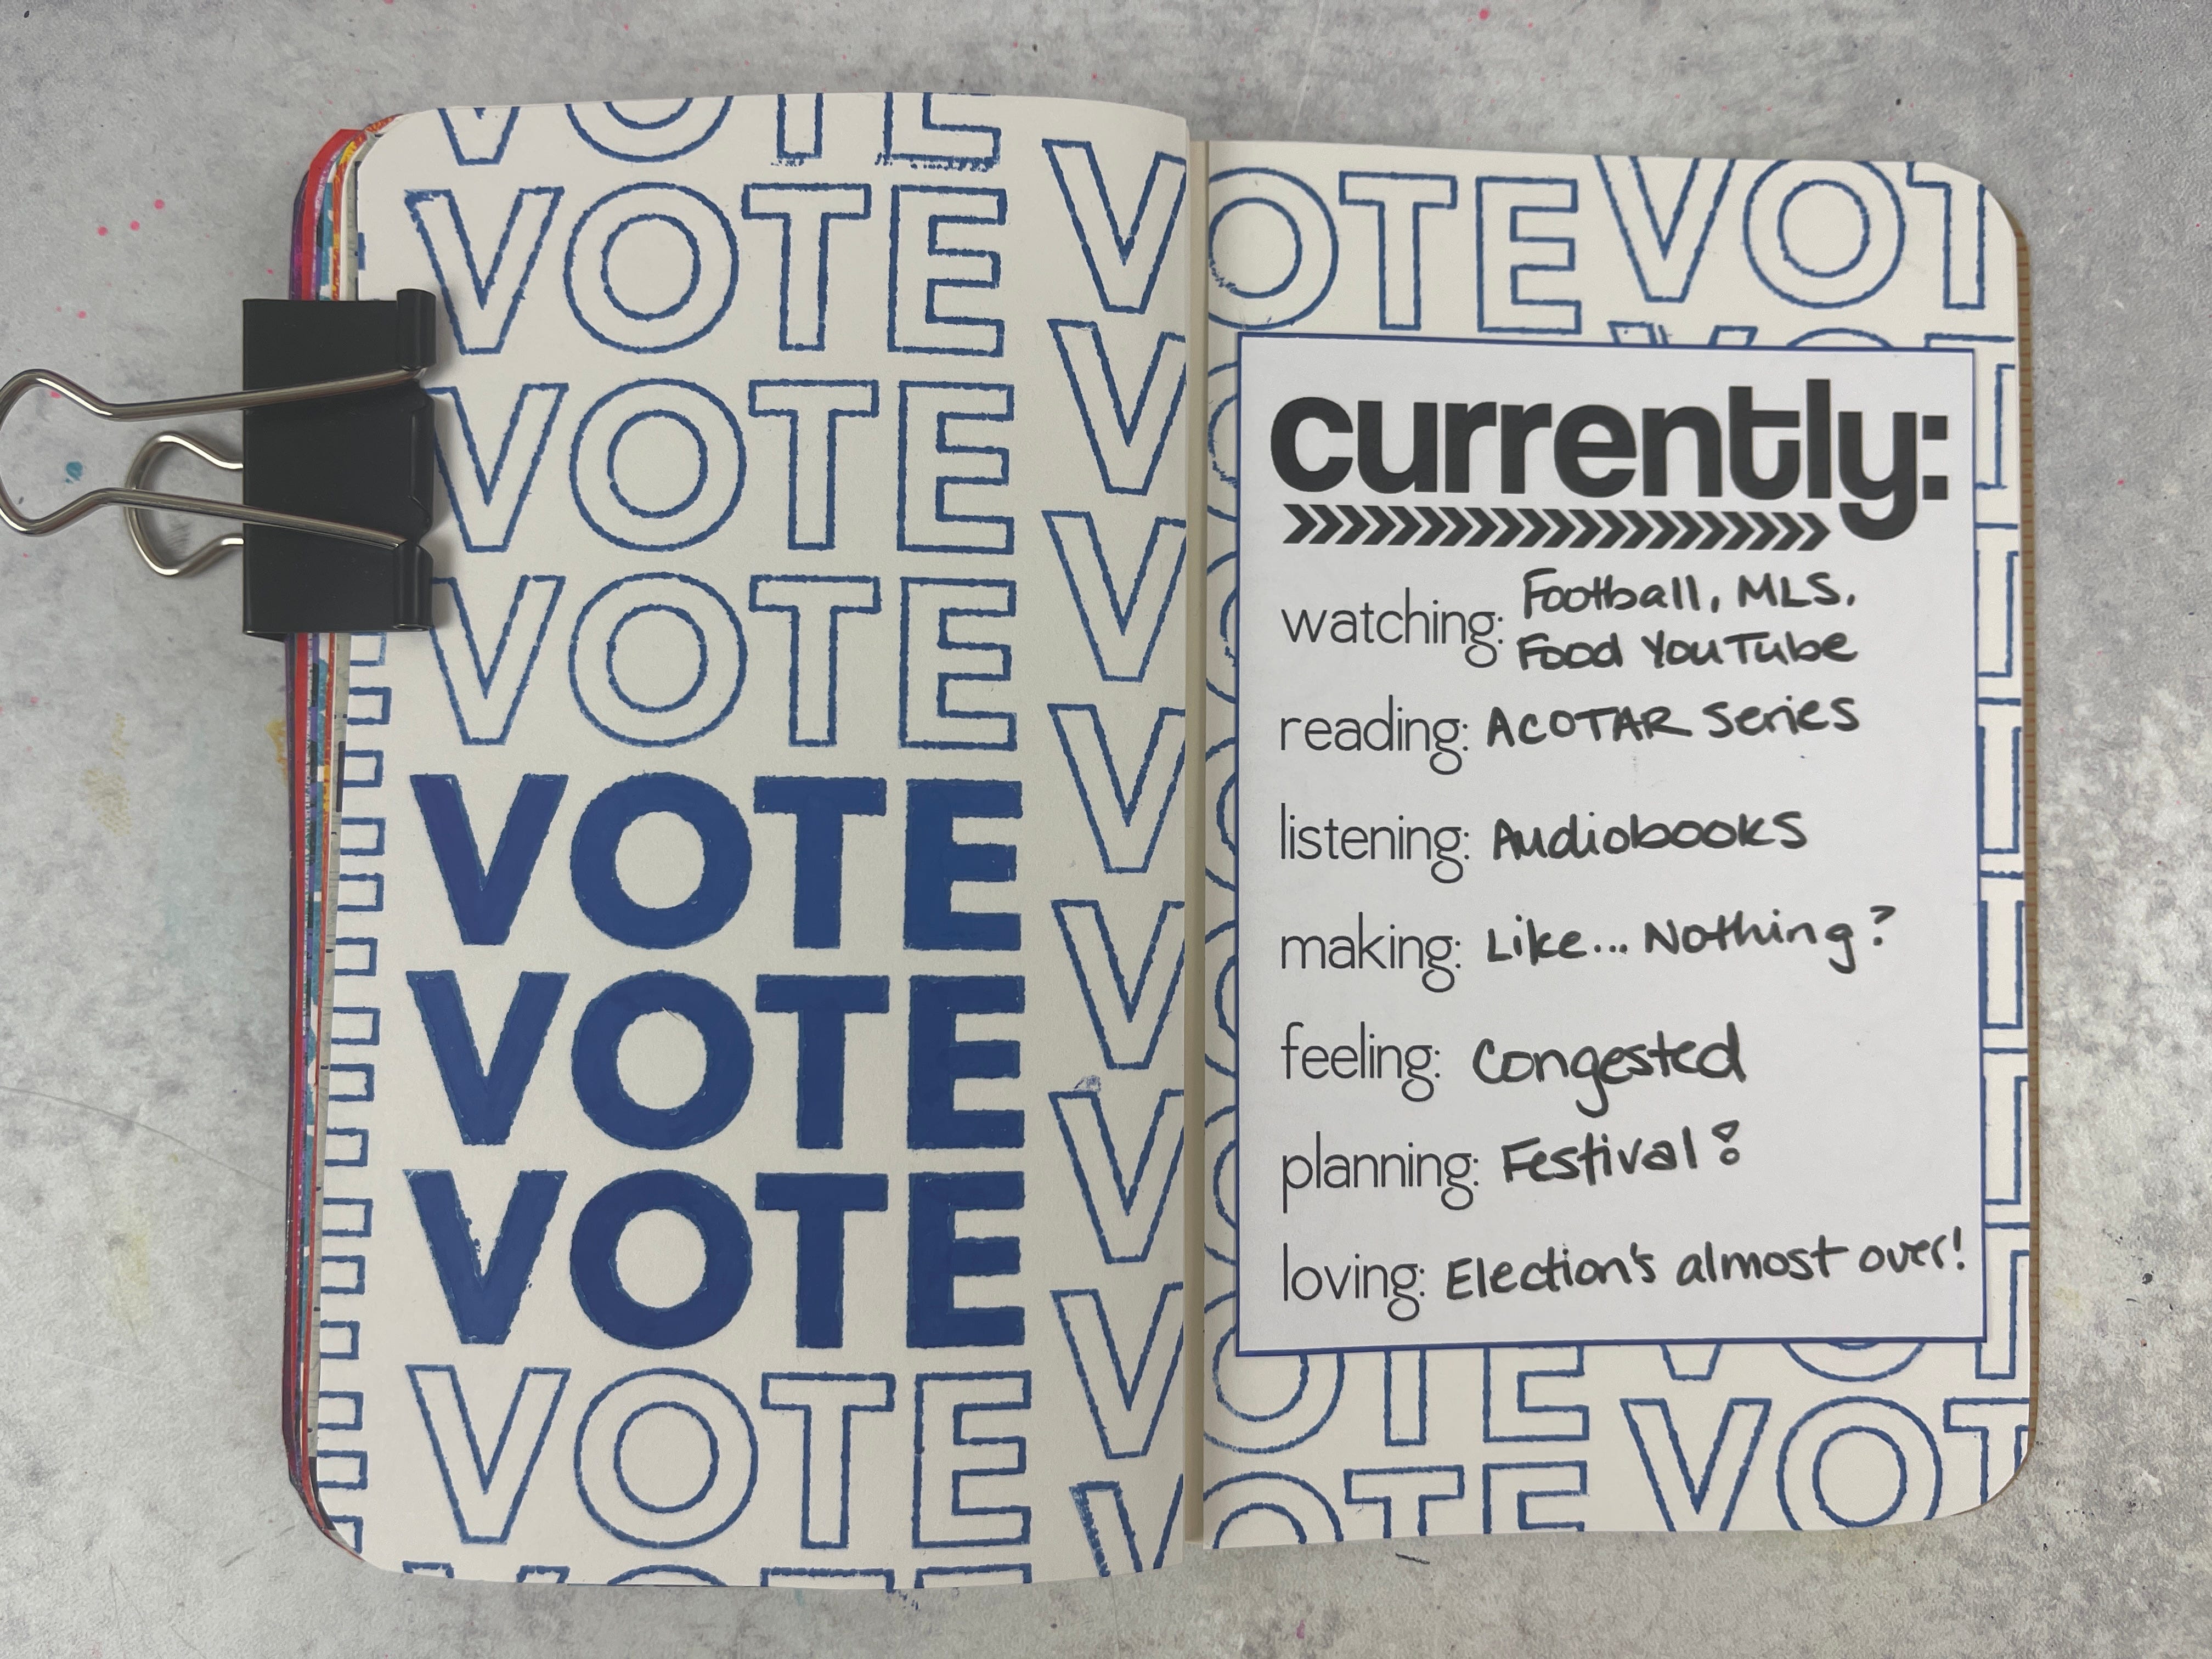 VOTE
VOTE
VOTE
VOTE
VOTE
VOTE
VOTE
VOTE
VOTE
V
V
V
V
V
V
V
V
OTE VOT
currently:
watching: Football, MLS,
Food YouTube
reading: ACOTAR Series
listening: Audiobooks
making: Like... Nothing?
feeling: Congested
planning: Festival!
loving: Election's almost over!
OTE VO
OTE VOT